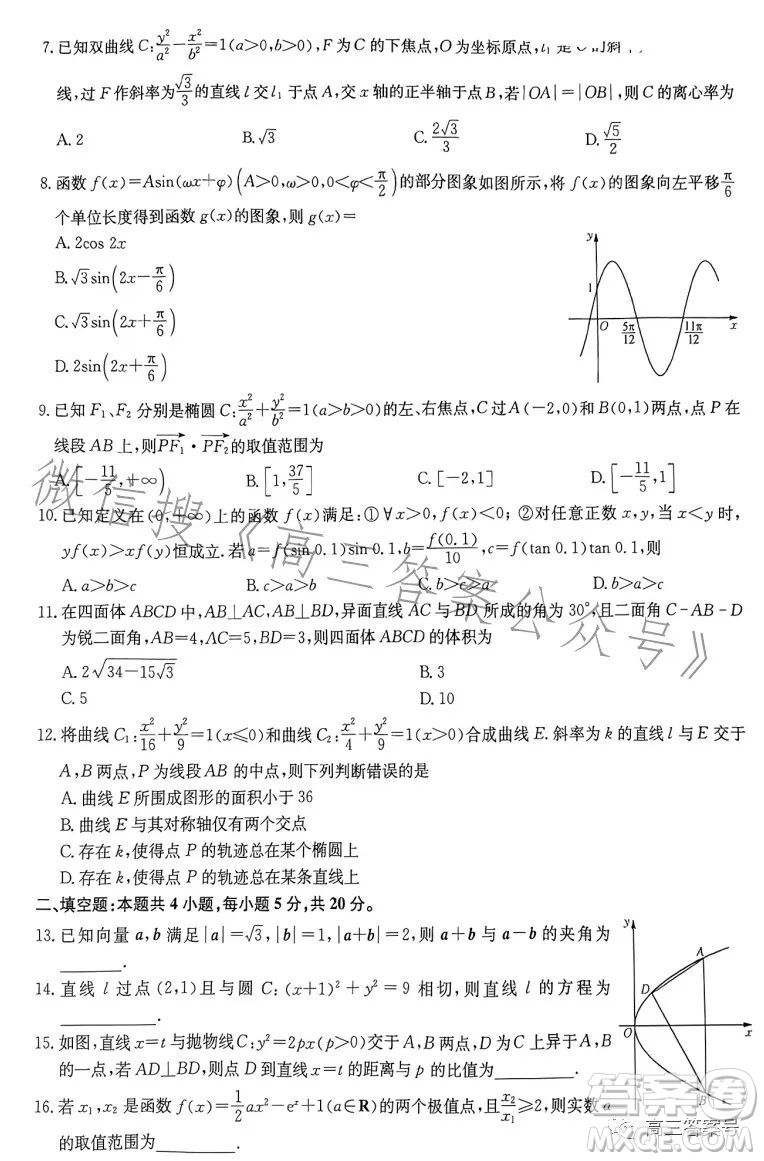 7. 已知双曲线 C: y²/a² − x²/b² = 1(a>0,b>0), F 为 C 的下焦点, O 为坐标原点, l₁ 是 C 的
线, 过 F 作斜率为 √3/3 的直线 l 交 l₁ 于点 A, 交 x 轴的正半轴于点 B, 若 |OA|=|OB|, 则 C 的离心率为
A. 2 B. √3 C. 2√3/3 D. √5/2
8. 函数 f(x)=Asin(ωx+φ)(A>0,ω>0,0<φ<π/2)的部分图象如图所示, 将 f(x)的图象向左平移 π/6
个单位长度得到函数 g(x)的图象, 则 g(x)=
A. 2cos 2x
B. √3sin(2x−π/6)
C. √3sin(2x+π/6)
D. 2sin(2x+π/6)
y 1 O 5π/12 11π/12 x
9. 已知 F₁、F₂ 分别是椭圆 C: x²/a² + y²/b² = 1(a>b>0)的左、右焦点, C 过 A(−2,0)和 B(0,1)两点, 点 P 在
线段 AB 上, 则 PF₁ · PF₂ 的取值范围为
A. [−11/5,+∞) B. [1,37/5] C. [−2,1] D. [−11/5,1]
10. 已知定义在(0,+∞)上的函数 f(x)满足: ①∀x>0, f(x)<0; ②对任意正数 x,y, 当 x<y 时,
yf(x)>xf(y)恒成立. 若 a=f(sin 0.1)sin 0.1, b=f(0.1)/10, c=f(tan 0.1)tan 0.1, 则
A. a>b>c B. c>a>b C. b>c>a D. b>a>c
11. 在四面体 ABCD 中, AB⊥AC, AB⊥BD, 异面直线 AC 与 BD 所成的角为 30°, 且二面角 C−AB−D
为锐二面角, AB=4, AC=5, BD=3, 则四面体 ABCD 的体积为
A. 2√(34−15√3) B. 3
C. 5 D. 10
12. 将曲线 C₁: x²/16 + y²/9 = 1(x≤0)和曲线 C₂: x²/4 + y²/9 = 1(x>0)合成曲线 E. 斜率为 k 的直线 l 与 E 交于
A,B 两点, P 为线段 AB 的中点, 则下列判断错误的是
A. 曲线 E 所围成图形的面积小于 36
B. 曲线 E 与其对称轴仅有两个交点
C. 存在 k, 使得点 P 的轨迹总在某个椭圆上
D. 存在 k, 使得点 P 的轨迹总在某条直线上
二、填空题: 本题共 4 小题, 每小题 5 分, 共 20 分。
13. 已知向量 a,b 满足|a|=√3, |b|=1, |a+b|=2, 则 a+b 与 a−b 的夹角为
________.
14. 直线 l 过点 (2,1) 且与圆 C: (x+1)²+y²=9 相切, 则直线 l 的方程为
________.
15. 如图, 直线 x=t 与抛物线 C: y²=2px(p>0)交于 A,B 两点, D 为 C 上异于 A,B
的一点, 若 AD⊥BD, 则点 D 到直线 x=t 的距离与 p 的比值为________.
16. 若 x₁,x₂ 是函数 f(x)=½ax²−eˣ+1(a∈R)的两个极值点, 且 x₂/x₁≥2, 则实数 a
的取值范围为________.
y A D O x B
微信搜《高三答案公众号》
答案圈
高三答案号
MXQE.COM